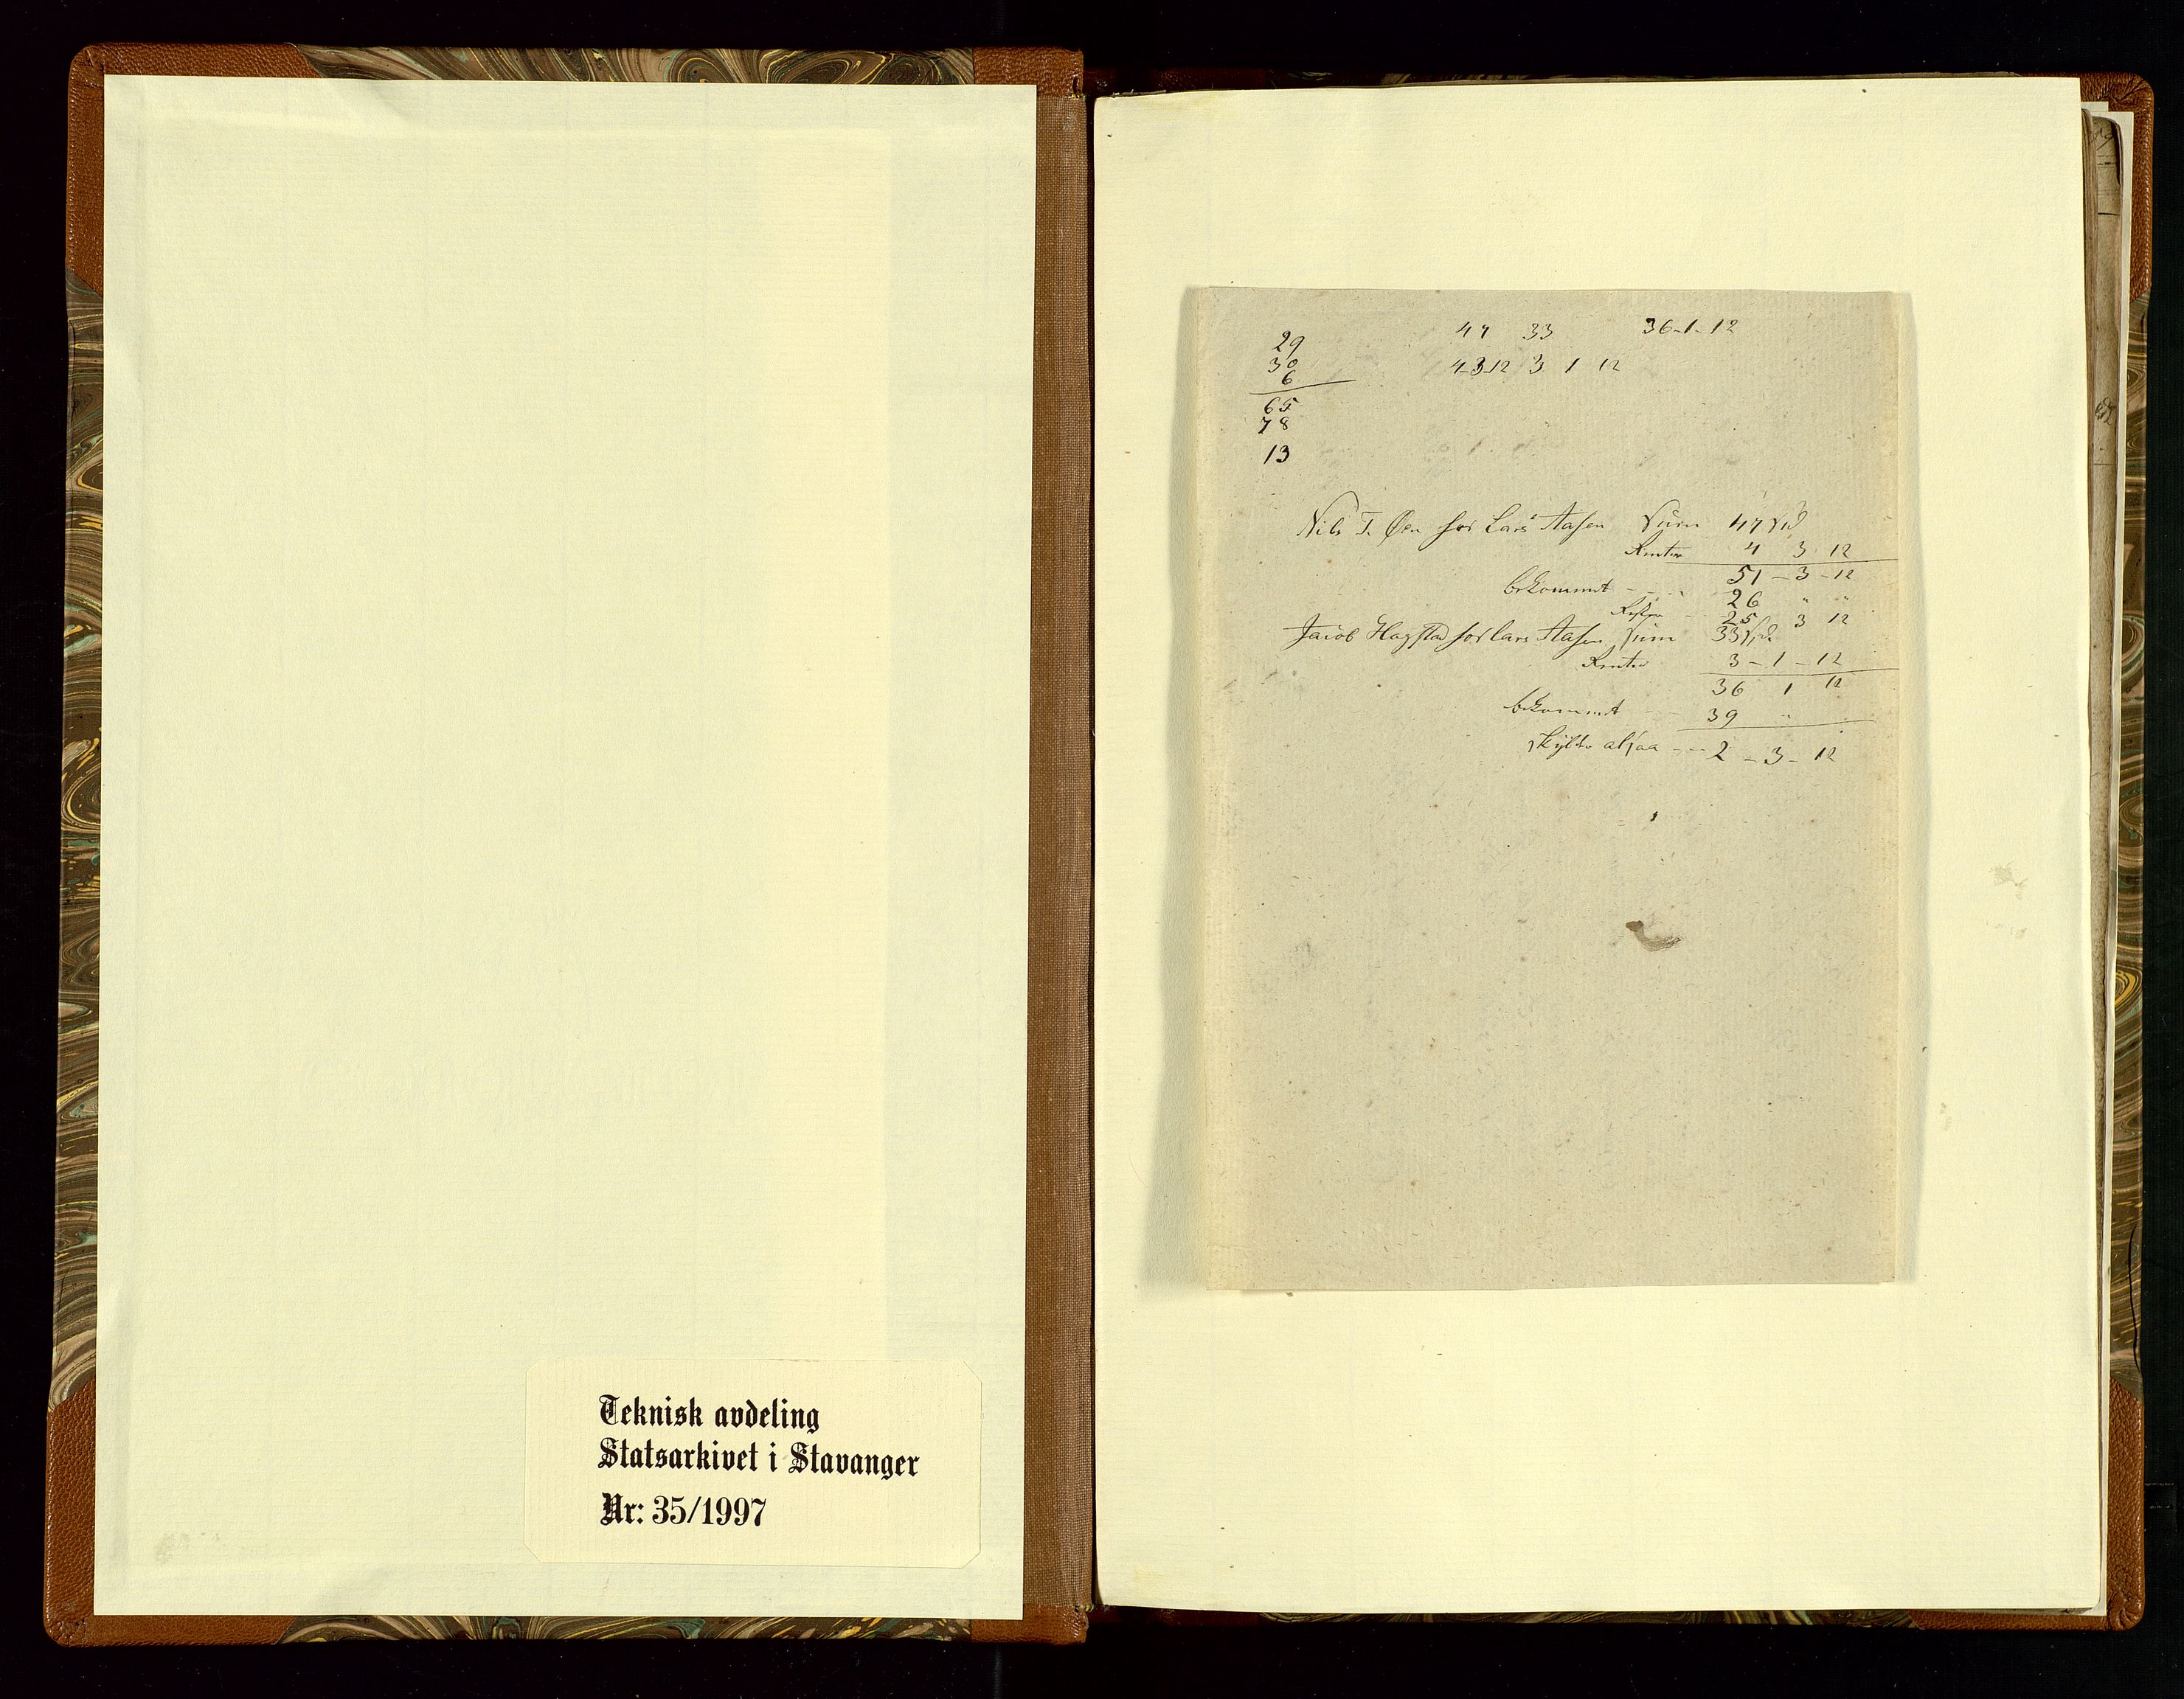 Teknisk avdeling
Statsarkivet i Stavanger
Nr: 35/1997
29
30
6
65
78
13
47 33 36-1-12
4-3-12 3 1 12
Nils T. Øen hos Lars Aasen Sum 47 Spd
Renter 4 3 12
51-3-12
bekommet - - - 26 " "
Rester - 25 3 12
Jacob Hagstad hos Lars Aasen Sum 33 Spd.
Renter 3-1-12
36 1 12
bekommet 39 "
skylder altsaa - - 2-3-12